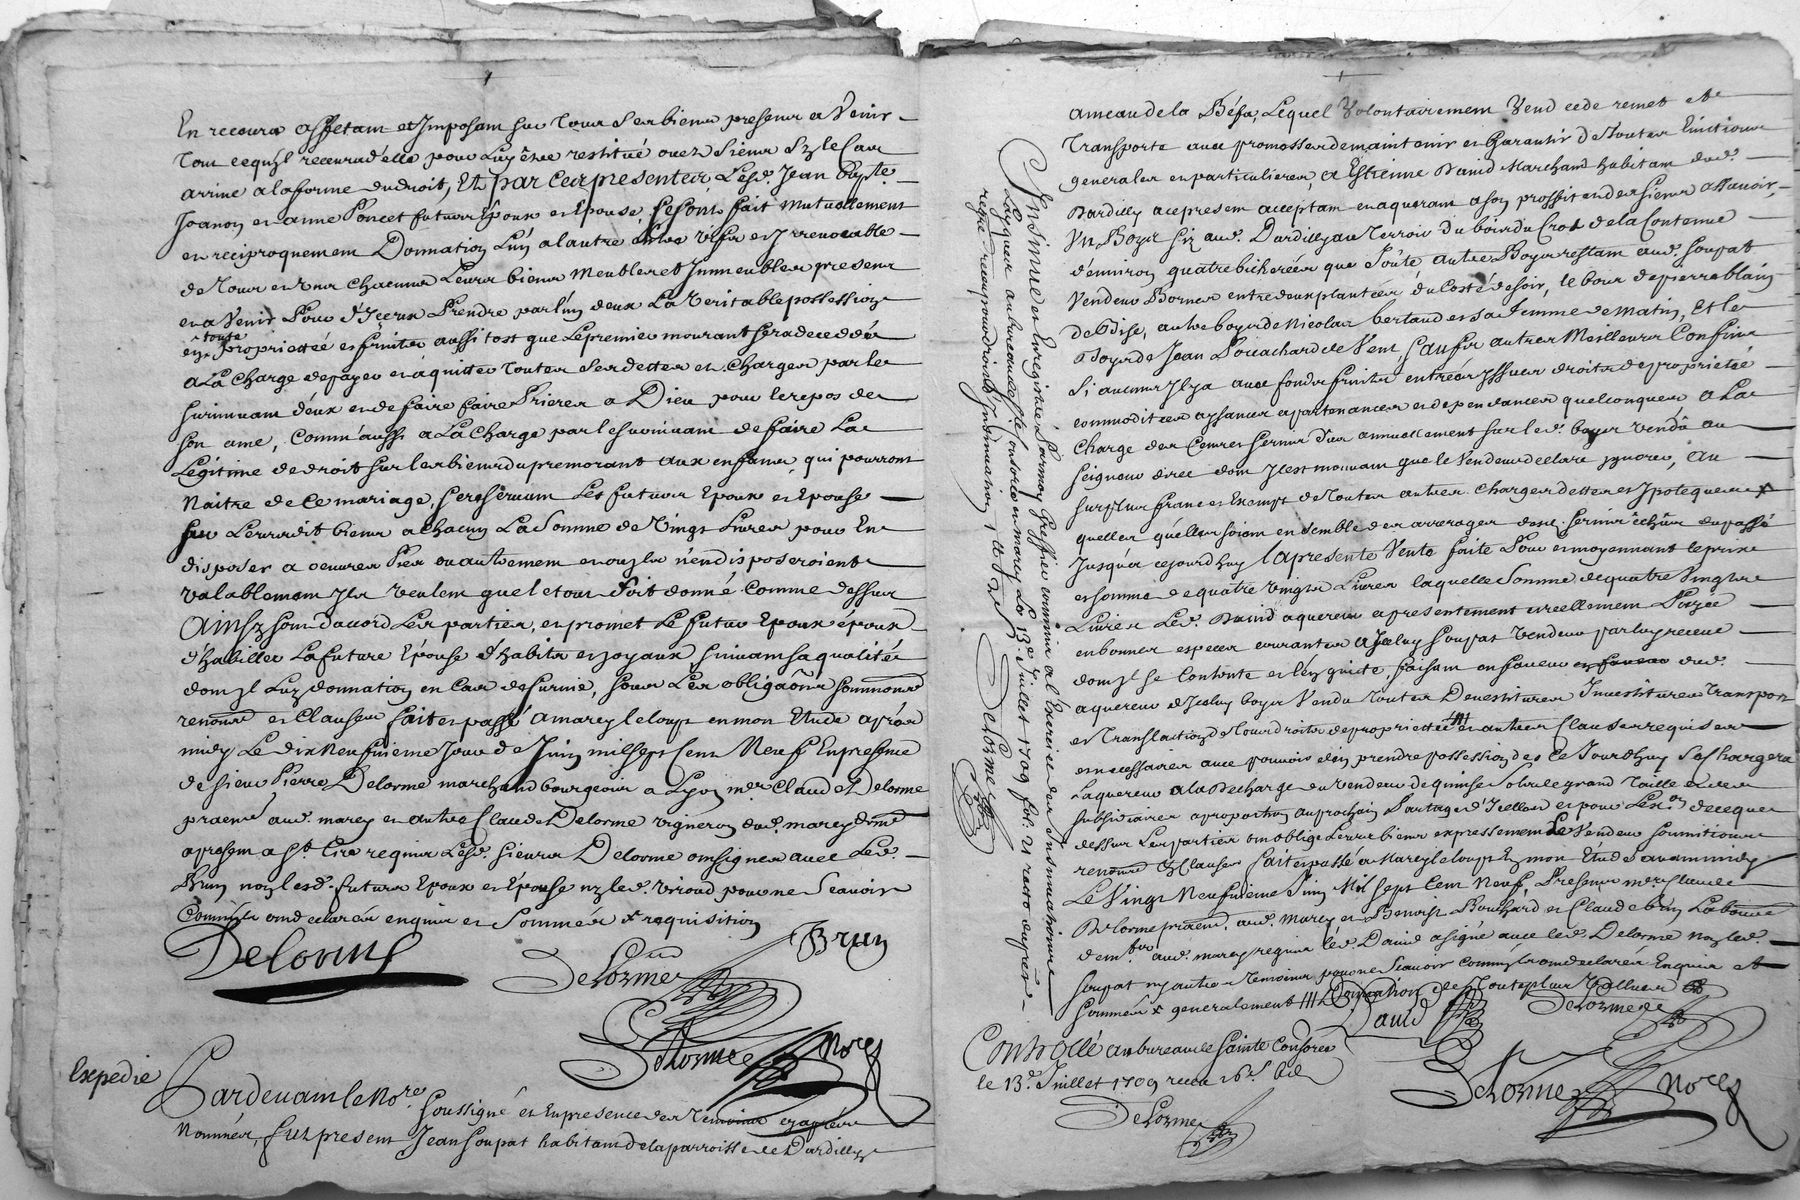 En recours affetant et Imposant sur Tous ses biens presens et Venir
tout cequ'il recevra d'elle pour luy être restitué ou es siens sy le Cas
arrive a la forme du droit, Et par ces presentes lesd. Jean Bapte
Joanon et anne Poncet futurs Epoux et Epouse, se sont fait mutuellement
et reciproquement Donnation l'un a l'autre entre vifs et Irrevocable
de Tous et uns chacuns Leurs biens Meubles et Immeubles presens
et a Venir Pour d'Iceux Prendre par l'un deux La Veritable possession
toute
en proprietteé et fruits aussi tost que le premier mourant sera decedé
a La Charge de payer et aquitter toutes ses dettes et Charges par le
survivant d'eux et de faire faire Prieres a Dieu pour le repos de
son ame, Comm'aussy a La Charge par le survivant de faire La
Legitime de droit sur les biens du premorant aux enfans qui pourront
Naitre de Ce mariage, se reservant Les futurs Epoux et Epouse
sur Leursdit biens a chacun La Somme de Vingt Livres pour En
disposer a oeuvres Pies ou autrement et ou ils n'en disposeroient
valablement Ils veulent que le tout soit donné Comme dessus
Ainsy sont d'accord Les parties, et promet Le futur Epoux
d'habiller La future Epouse d'habits et joyaux suivant sa qualitée
dont Il Luy donnation en Cas de survie, sous Les obligaõns soummons
renonõns et Clauses fait et passé a marcy le loup en mon Etude après
midy Le dix Neufvieme Jour de Juin mil sept Cent Neuf En presence
de sieur Pierre Delorme marchand bourgeois a Lyon mer Claude Delorme
praticn aud. marcy et autre Claude Delorme vigneron dud. marcy
apresent a St. Cire requis Lesd. sieurs Delorme ont signé avec Led.
Brun non lesd. futurs Epoux et Epouse ny led. viroud pour ne Scavoir
Comm'ils ont declarés enquis et Sommés x requisition
Delorme
Delorme
Brun
Delorme Nore
Expedié
Pardevant le Nore. soussigné et En presence des Témoins cy apres
Nommés, fut present Jean Soupat habitant de la parroisse de Dardilly
ameau de la Béfa, Lequel Volontairement Vend cede remet et
Transporte avec promesses de maintenir et Garantir de Toutes Evictions
generales et particulieres, a Estienne David Marchand habitant dud.
Dardilly a ce present acceptant et aquerant a son proffit et des siens assavoir,
Un Boys sis aud. Dardilly au Terroir du bois du Crot de la Contenue
d'environ quatre bicherées que joûte autre Boys restant aud. Soupat
Vendeur Bornes entre deux plantées du Costé de soir, le bois de pierre blain
de Bise, autre boys de Nicolas bertaud et sa femme de matin, Et les
Boys de Jean de Vent, sauf ses autres Meilleurs Confins
Si aucuns Ily a avec fonds fruits entrées Issues droits de propriété
commodités aysances apartenances et dependances quelconques a La
Charge des Cens servis d'us annuellement sur led. boys vendû au
seigneur direc dont Il est mouvant que le Vendeur declare ignorer, Au
surplus franc et Exempt de Toutes autres Charges dettes et Ipoteques x
quelles quelles soient ensemble des arrerages desd. servis échûs du passé
Jusques a cejourdhuy, La presente Vente faite Pour et moyennant le prix
et somme de quatre vingts Livres laquelle somme de quatre Vingts
Livres Led. David aquereur a presentement et reellement Payée
en bonnes especes courantes a Iceluy Soupat Vendeur par luy receue
dont Il se Contente et l'en quitte, faisant en faveur en faveur dud.
aquereur d'Iceluy boys Vendu toutes Devestitures Investitures Transport
et Translations de Tous droits de proprietée /// et autres Clauses requises
et necessaires avec pouvoir d'en prendre possession des ce Jourdhuy Se Chargera
L'aquereur a la Decharge du vendeur de quinse sols de grand Taille et des
subsidiaires a proportion au prochain Partage d'Icelles et pour l'ex.on de ceque
dessus Les parties ont oblige Leurs biens expressement le Vendeur soumitions
renonõns et Clauses fait et passé a Marcy le loup En mon Etude avant midy
Le Vingt Neufvieme Juin Mil sept Cent Neuf, Presens mer. Claude
Delorme praticn. aud. Marcy et Benoist Bouchard et Claude brun
dem.ts aud. marcy requis led. David a signé avec led. Delorme non led.
Soupat ny autres temoins pour ne Scavoir Comm'ils ont declarés Enquis et
Sommés x generalement /// Donnation de Toute plus Vallues
David
Delorme
Delorme Nore
Controllé au bureau de Sainte Consorce
le 13.e Juillet 1709 receu
Delorme
Insinué et Enregistré Par moy Greffier commis a l'Exercise des Insinuations
Laïques au bureau de Ste Consorce et marcy Le 13.e Juillet 1709 fol. 21 recto et apres
regte. receu pour droits d'Insinuation
Delorme